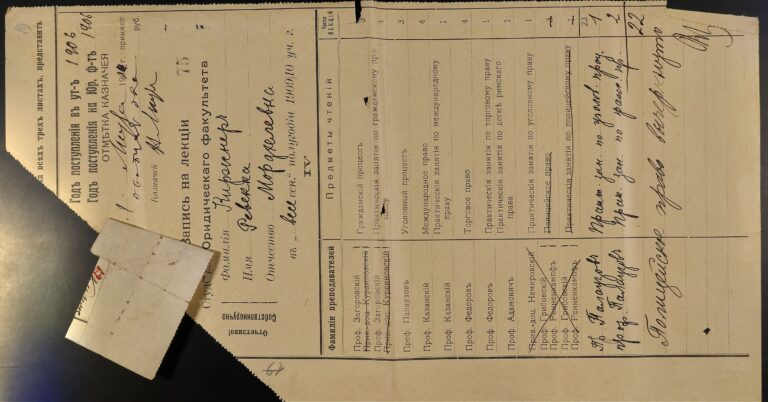 всѣхъ трехъ листахъ, представить
Годъ поступленія въ ун-тъ 1906
Годъ поступленія на Юр. ф-тъ 1906
ОТМѢТКА КАЗНАЧЕЯ
принято
руб.
Казначей
Запись на лекціи 75
Юридическаго факультета
Фамилія Киржнеръ
Имя Ревекка
Отчество Мордхелевна
въ „ " полугодіи 1909/10 уч. г.
IV
Отчетливо!
Собственноручно
Фамиліи преподавателей Предметы чтеній Число лекцій
Проф. Загоровскій Гражданскій процессъ 3
Прив.-доц. Курциновскій
Проф. Загоровскій Практическія занятія по гражданскому праву 1
Прив.-доц. Курциновскій
Проф. Палаузовъ Уголовный процессъ 3
Проф. Казанскій Международное право 4
Проф. Казанскій Практическія занятія по международному праву 1
Проф. Федоровъ Торговое право 4
Проф. Федоровъ Практическія занятія по торговому праву 1
Проф. Адамовичъ Практическія занятія по догмѣ римскаго права 1
Прив.-доц. Немировскій Практическія занятія по уголовному праву 1
Проф. Грибовскій Полицейское право
Проф. Ренненкампфъ
Проф. Грибовскій Практическія занятія по полицейскому праву
Проф. Ренненкампфъ
23
Пр. Палаузовъ Практ. зан. по уголов. проц. 1
проф. Палаузовъ Прак. зан. по 2
22
Полицейское право вычеркнуто